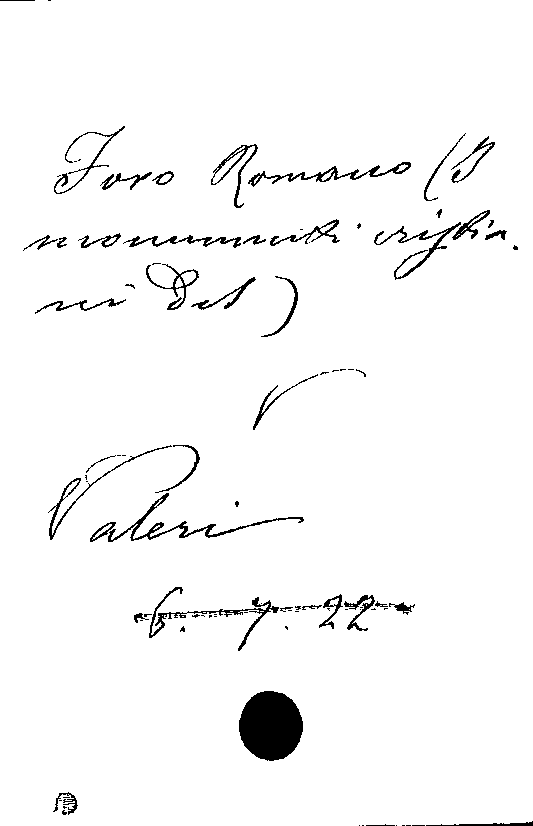 Foro Romano (I
monumenti cristia-
ni del)
V
Valeri
6. 7. 22